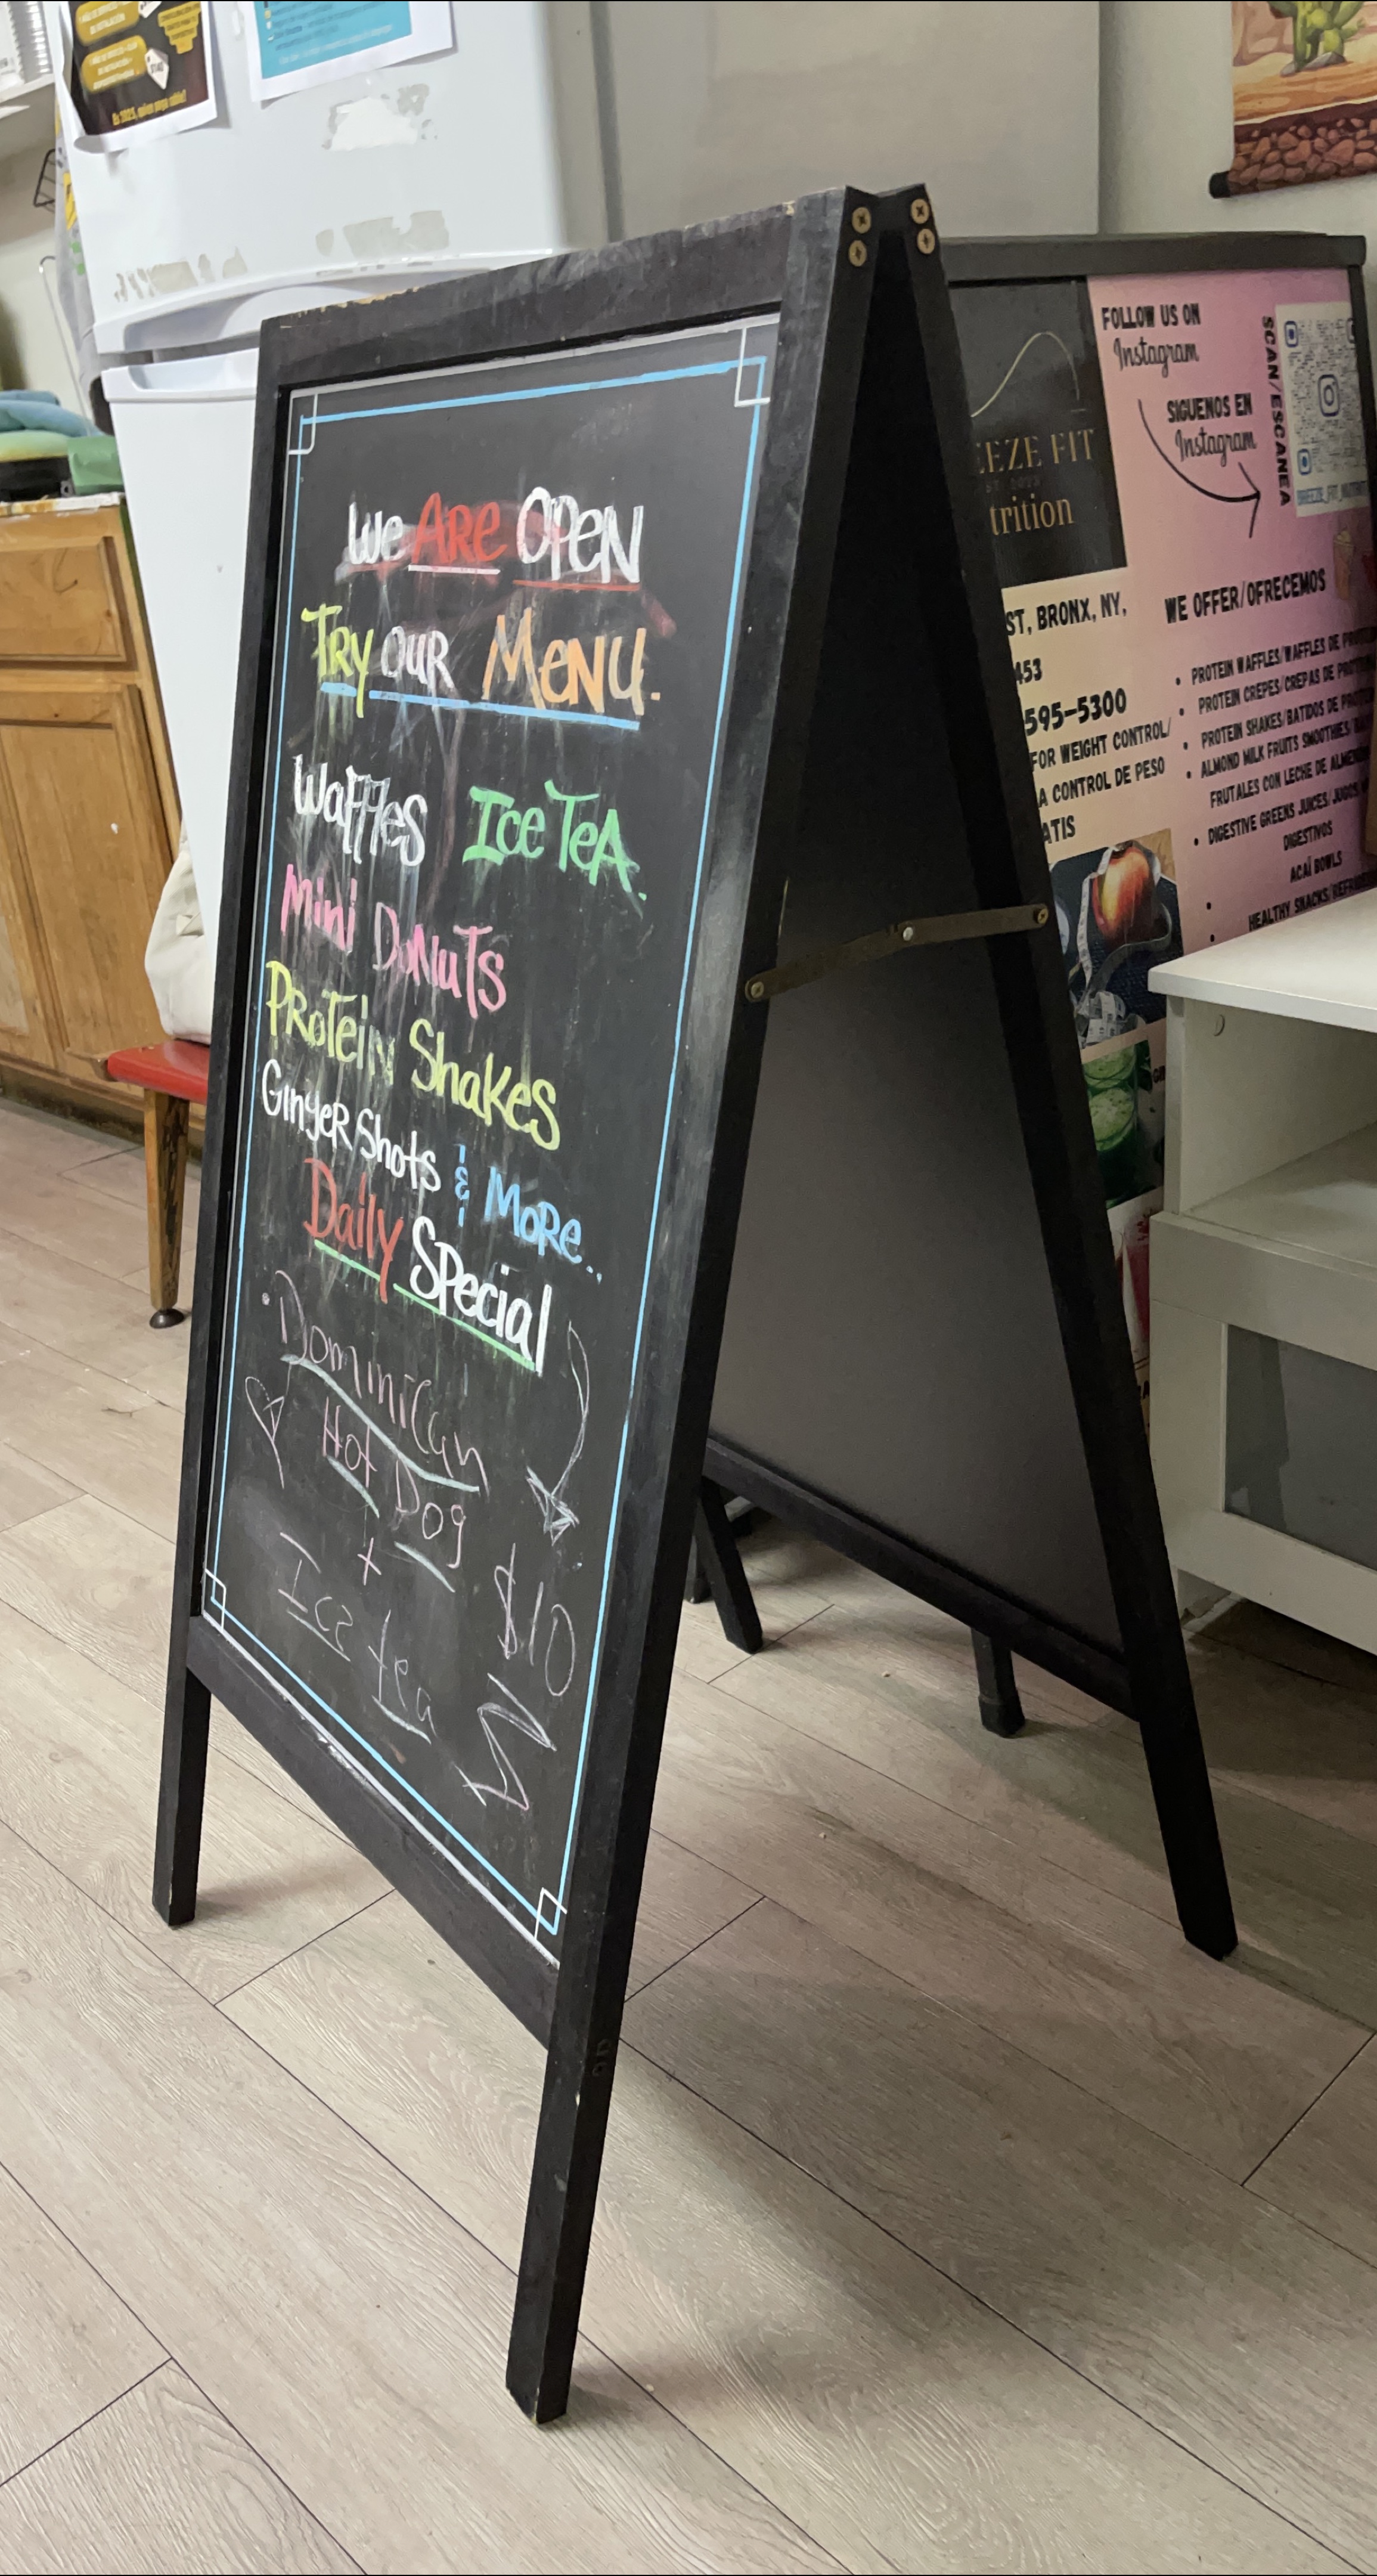 We Are Open
Try our Menu.
Waffles Ice Tea.
Mini Donuts
Protein Shakes
Ginger Shots & More..
Daily Special
Dominican
Hot Dog
+
Ice tea
$10
FOLLOW US ON
Instagram
SIGUENOS EN
Instagram
SCAN/ESCANEA
EEZE FIT
trition
ST, BRONX, NY,
453
595-5300
FOR WEIGHT CONTROL/
A CONTROL DE PESO
ATIS
WE OFFER/OFRECEMOS
• PROTEIN WAFFLES/WAFFLES DE
• PROTEIN CREPES/CREPAS DE
• PROTEIN SHAKES/BATIDOS DE
• ALMOND MILK FRUITS SMOOTHIES/
FRUTALES CON LECHE DE
• DIGESTIVE GREENS JUICES/JUGOS
DIGESTIVOS
ACAÍ BOWLS
HEALTHY SNACKS/